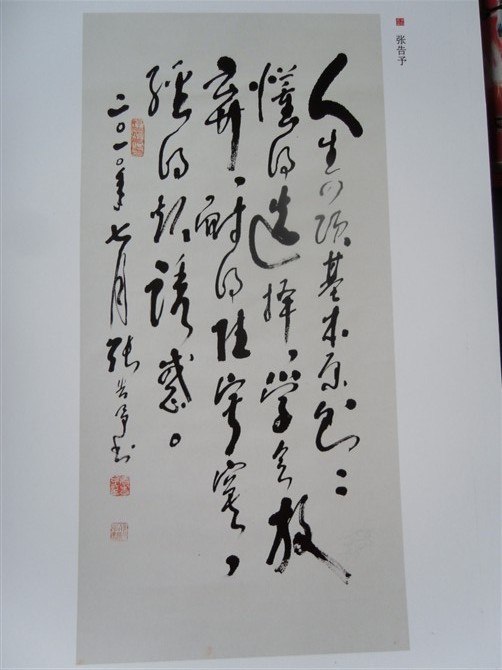 张告予
人生四项基本原则：
懂得选择，学会放
弃，耐得住寂寞，
经得起诱惑。
二〇一〇年七月 张告予书